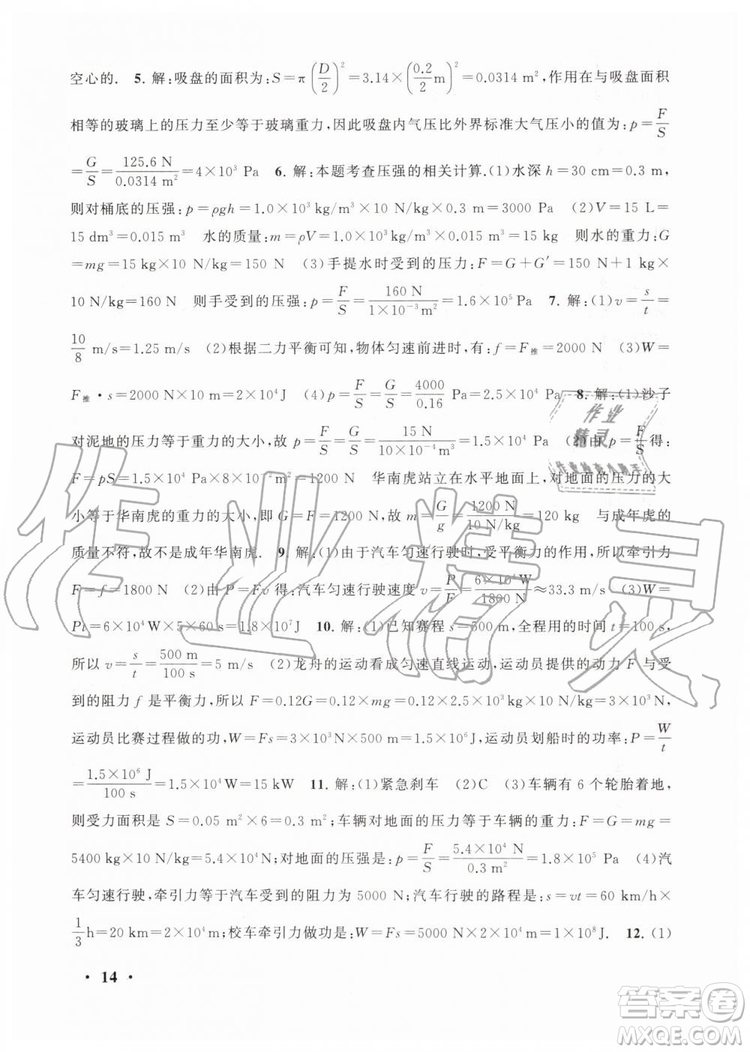 空心的. 5. 解:吸盘的面积为:S=π(D/2)²=3.14×(0.2/2 m)²=0.0314 m²,作用在与吸盘面积
相等的玻璃上的压力至少等于玻璃重力,因此吸盘内气压比外界标准大气压小的值为:p=F/S
=G/S=125.6 N/0.0314 m²=4×10³ Pa 6. 解:本题考查压强的相关计算.(1)水深 h=30 cm=0.3 m,
则对桶底的压强:p=ρgh=1.0×10³ kg/m³×10 N/kg×0.3 m=3000 Pa (2)V=15 L=
15 dm³=0.015 m³ 水的质量:m=ρV=1.0×10³ kg/m³×0.015 m³=15 kg 则水的重力:G
=mg=15 kg×10 N/kg=150 N (3)手提水时受到的压力:F=G+G′=150 N+1 kg×
10 N/kg=160 N 则手受到的压强:p=F/S=160 N/1×10⁻³ m²=1.6×10⁵ Pa 7. 解:(1)v=s/t=
10/8 m/s=1.25 m/s (2)根据二力平衡可知,物体匀速前进时,有:f=F推=2000 N (3)W=
F推·s=2000 N×10 m=2×10⁴ J (4)p=F/S=G/S=4000/0.16 Pa=2.5×10⁴ Pa 8. 解:(1)沙子
对泥地的压力等于重力的大小,故 p=F/S=G/S=15 N/10×10⁻⁴ m²=1.5×10⁴ Pa (2)由 p=F/S得:
F=pS=1.5×10⁴ Pa×800×10⁻⁴ m²=1200 N 华南虎站立在水平地面上,对地面的压力的大
小等于华南虎的重力的大小,即 F=G=1200 N,故 m=G/g=1200 N/10 N/kg=120 kg 与成年虎的
质量不符,故不是成年华南虎. 9. 解:(1)由于汽车匀速行驶时,受平衡力的作用,所以牵引力
F=f=1800 N (2)由 P=Fv 得:汽车匀速行驶速度 v=P/F=6×10⁴ W/1800 N≈33.3 m/s (3)W=
Pt=6×10⁴ W×5×60 s=1.8×10⁷ J 10. 解:(1)已知赛程 s=500 m,全程用的时间 t=100 s,
所以 v=s/t=500 m/100 s=5 m/s (2)龙舟的运动看成匀速直线运动,运动员提供的动力 F 与受
到的阻力 f 是平衡力,所以 F=0.12G=0.12×mg=0.12×2.5×10³ kg×10 N/kg=3×10³ N
运动员比赛过程做的功,W=Fs=3×10³ N×500 m=1.5×10⁶ J 运动员划船时的功率:P=W/t
=1.5×10⁶ J/100 s=1.5×10⁴ W 11. 解:(1)紧急刹车 (2)C (3)车辆有 6 个轮胎着地,
则受力面积是 S=0.05 m²×6=0.3 m²;车辆对地面的压力等于车辆的重力:F=G=mg=
5400 kg×10 N/kg=5.4×10⁴ N;对地面的压强:p=F/S=5.4×10⁴ N/0.3 m²=1.8×10⁵ Pa (4)汽
车匀速行驶,牵引力等于汽车受到的阻力为 5000 N;汽车行驶的路程是:s=vt=60 km/h×
1/3 h=20 km=2×10⁴ m;校车牵引力做功是:W=Fs=5000 N×2×10⁴ m=1×10⁸ J. 12. (1)
· 14 ·
作业精灵
作业
精灵
答案圈
MXQE.COM